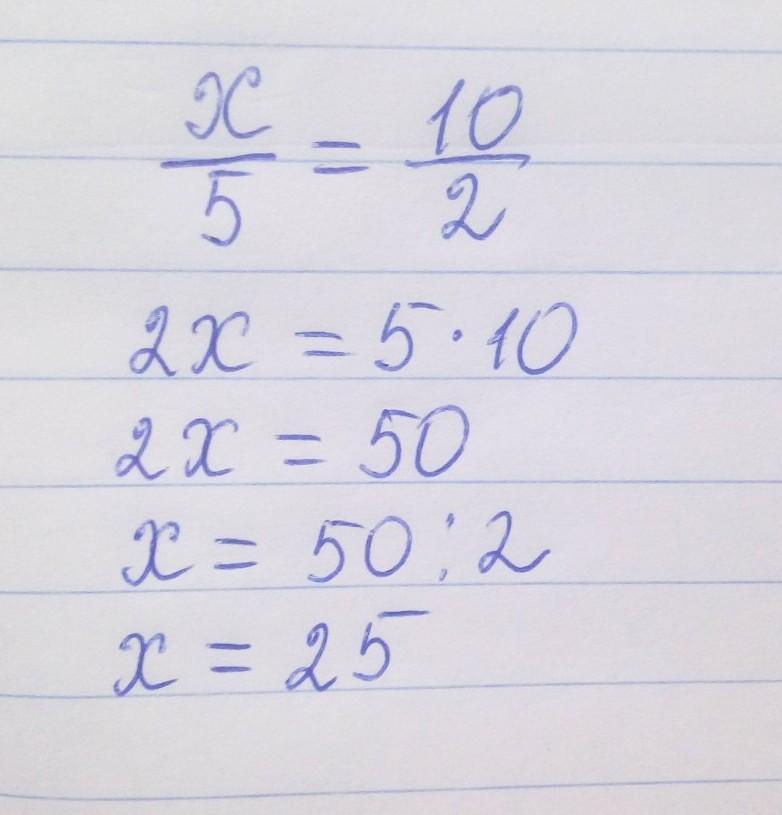 x/5 = 10/2
2x = 5·10
2x = 50
x = 50:2
x = 25